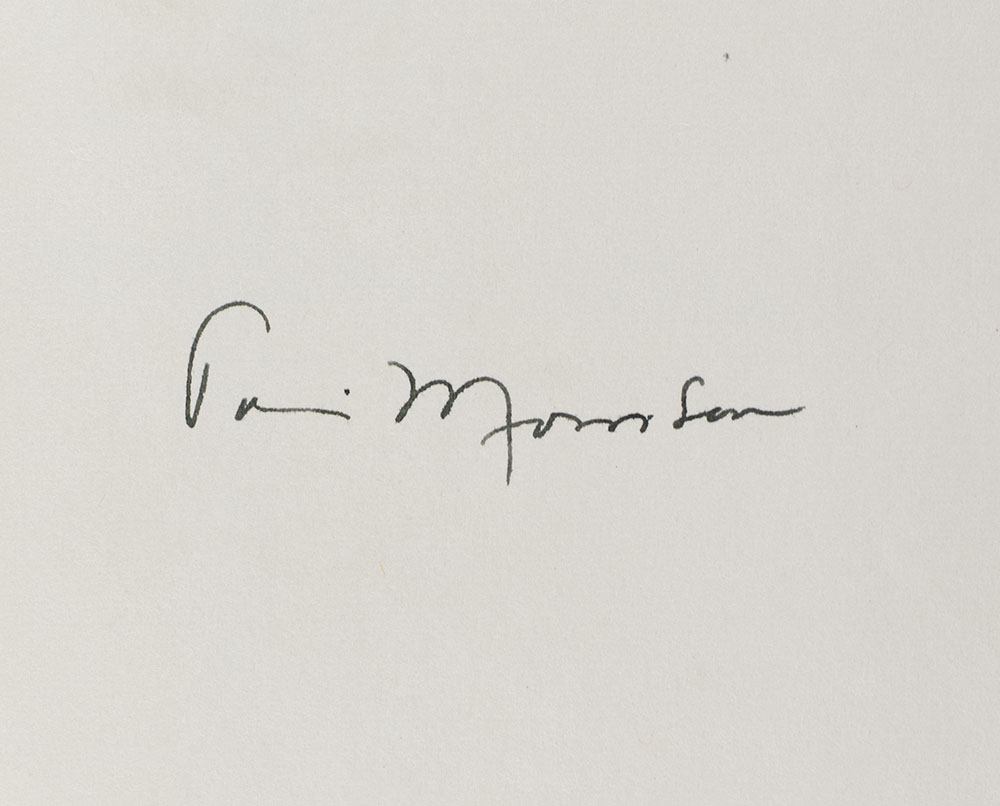 Toni Morrison